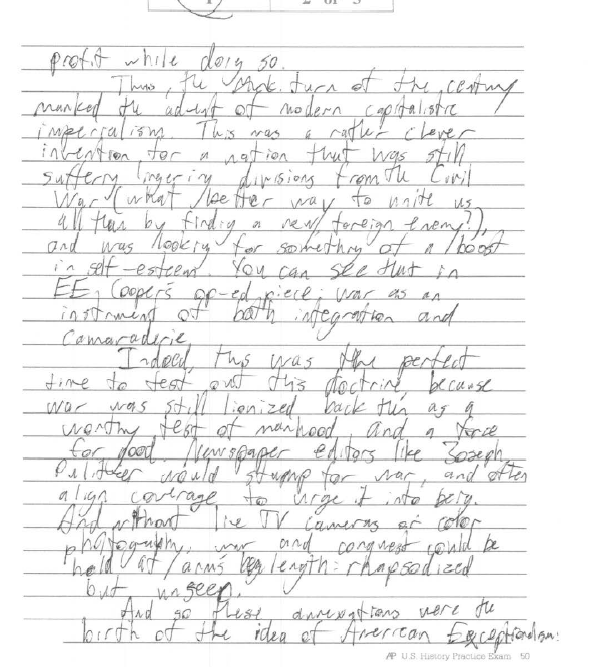 1 2 of 3
profit while doing so.
Thus, the turn of the century
marked the advent of modern capitalistic
imperialism. This was a rather clever
invention for a nation that was still
suffering lingering divisions from the Civil
War (what better way to unite us
all than by finding a new foreign enemy?),
and was looking for something of a boost
in self-esteem. You can see that in
EE. Cooper's op-ed piece: war as an
instrment of both integration and
Camaraderie.
Indeed, this was the perfect
time to test out this doctrine, because
war was still lionized back then as a
worthy test of manhood, and a force
for good. Newspaper editors like Joseph
Pulitzer would stump for war, and often
align coverage to urge it into being.
And without live TV cameras or color
photography, war and conquest could be
held at arms length: rhapsodized
but unseen.
And so these annexations were the
birth of the idea of American Exceptionalism:
AP U.S. History Practice Exam 50